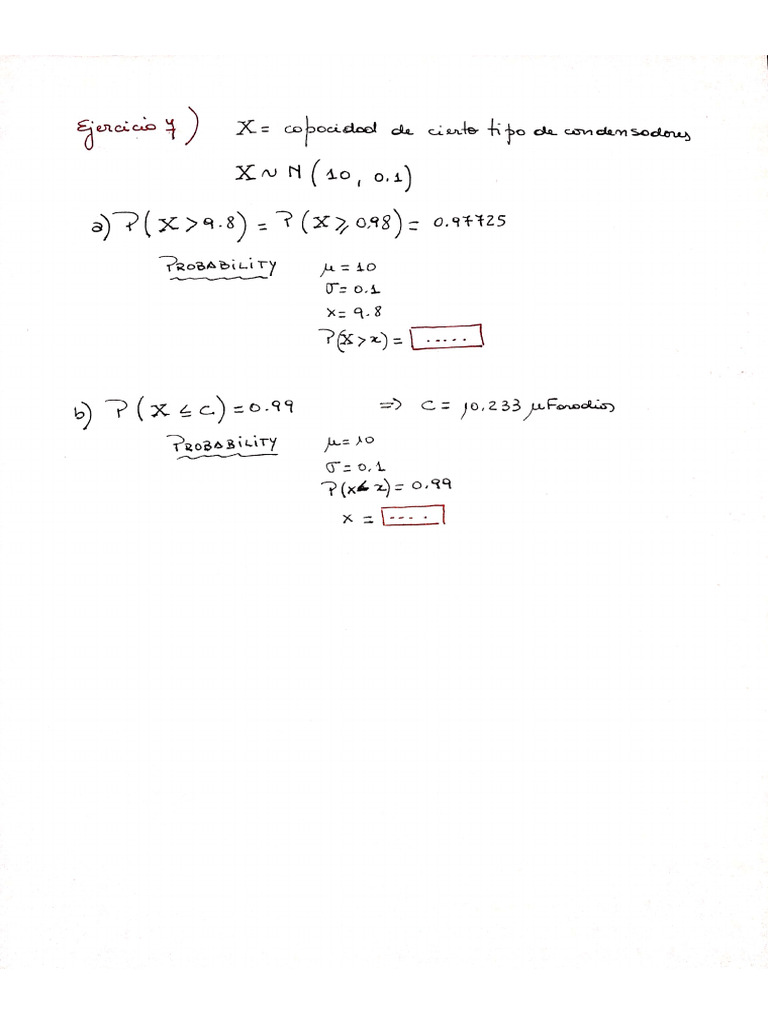 Ejercicio 7) X = capacidad de cierto tipo de condensadores
X ~ N (10, 0.1)
a) P(X > 9.8) = P(X ⩾ 0.98) = 0.97725
PROBABILITY μ = 10
σ = 0.1
x = 9.8
P(X > x) = .....
b) P(X ≤ c) = 0.99 ⇒ c = 10.233 μFaradios
PROBABILITY μ = 10
σ = 0.1
P(X ≤ x) = 0.99
x = ....